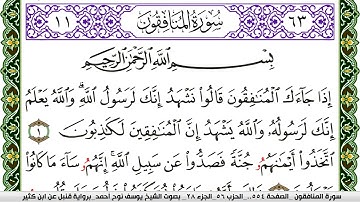 ٦٣ سُورَةُ المُنَافِقُونَ ١١
بِسْمِ اللَّهِ الرَّحْمَٰنِ الرَّحِيمِ
إِذَا جَآءَكَ الْمُنَٰفِقُونَ قَالُوا نَشْهَدُ إِنَّكَ لَرَسُولُ اللَّهِ وَاللَّهُ يَعْلَمُ
إِنَّكَ لَرَسُولُهُ وَاللَّهُ يَشْهَدُ إِنَّ الْمُنَٰفِقِينَ لَكَٰذِبُونَ ١
اتَّخَذُوا أَيْمَٰنَهُمْ جُنَّةً فَصَدُّوا عَن سَبِيلِ اللَّهِ إِنَّهُمْ سَآءَ مَا كَانُوا
سورة المنافقون .. الصفحة ٥٥٤ .. الحزب ٥٦ .. الجزء ٢٨ .. بصوت الشيخ يوسف نوح أحمد .. برواية قنبل عن ابن كثير